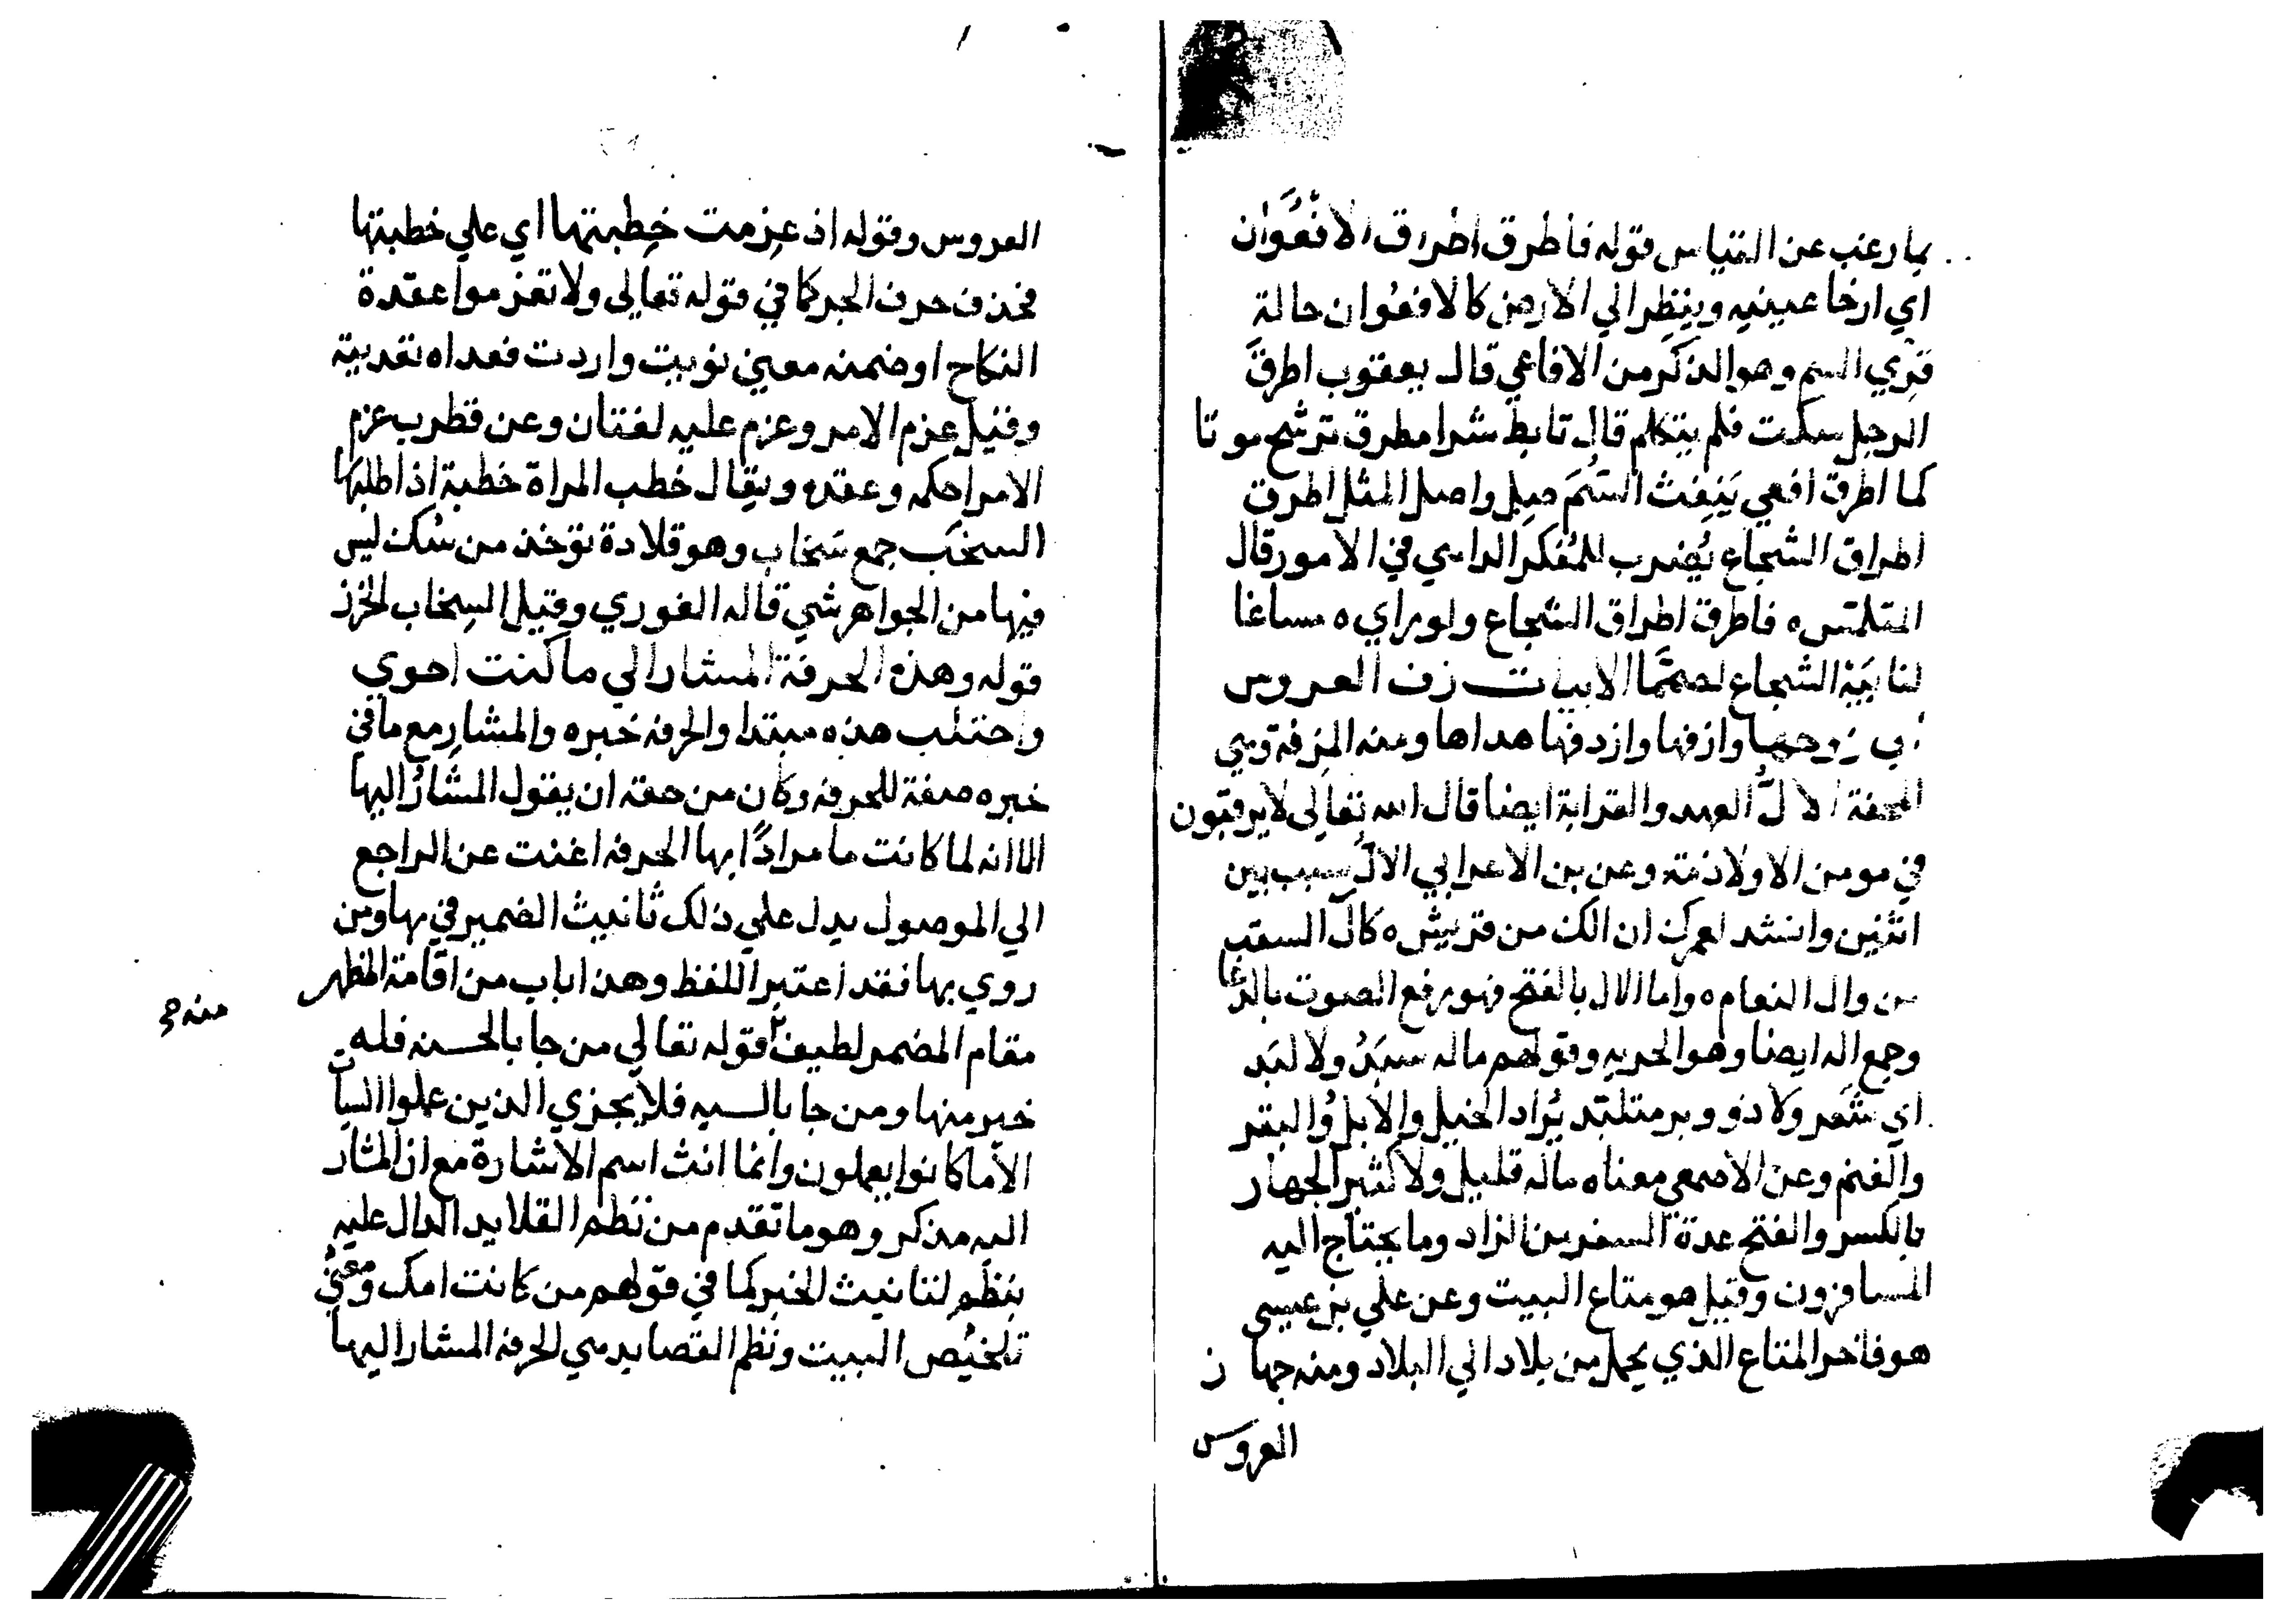 بما رغب عن القتباس قوله فاطرق اطراق الافعوان
اي ارخا عينيه وينظر الي الارض كالافعوان حالة
قري السم وهو الذكر من الافاعي قال يعقوب اطرق
الرجل سكت فلم يتكلم قال تابط شرا مطرق ترشح موتا
كما اطرق افعي ينفث السم صل واصل المثل اطرق
اطراق الشجاع يضرب للمفكر الداهي في الامور قال
المتلمس ه فاطرق اطراق الشجاع ولو راي ه مساغا
لنابيه الشجاع لصمما الابيات زف العروس
الي زوجها وازفها وازدفها هداها ومنه المزفة وهي
المحفة الالّ العهد والقرابة ايضا قال الله تعالى لا يرقبون
في مومن الا ولا ذمة وعن بن الاعرابي الالّ سبب بين
اثنين وانشد لعمرك ان الك من قريش ه كال السقب
من رال النعام ه واما الال بالفتح فهو رفع الصوت بالدعا
وجمع اله ايضا وهو الحربه وقولهم ماله سبد ولا لبد
اي شعر ولا ذو وبر متلبد يراد الخيل والابل والبقر
والغنم وعن الاصمعي معناه ماله قليل ولا كثير الجهاز
بالكسر والفتح عدة السفر من الزاد وما يحتاج اليه
المسافرون وقيل هو متاع البيت وعن علي بن عيسى
هو فاخر المتاع الذي يحمل من بلاد الي البلاد ومنه جهاز
العروس
العروس وقوله اذ عزمت خطبتها اي علي خطبتها
فحذف حرف الجر كما في قوله تعالى ولا تعزموا عقدة
النكاح او ضمنه معني نويت واردت فعداه تعديته
وقيل عزم الامر وعزم عليه لغتان وعن قطرب عزم
الامر احكمه وعقده ويقال خطب المراة خطبة اذا طلبها
السخب جمع سخاب وهو قلادة تؤخذ من سك ليس
فيها من الجواهر شي قاله الغوري وقيل السخاب الخرز
قوله وهذه الحرفة المشار الي ما كنت احوي
واحتلب هذه مبتدا والحرفه خبره والمشار مع ما في
خبره صفة للحرفه وكان من حقه ان يقول المشار اليها
الا انه لما كانت ما مرادًا بها الحرفه اغنت عن الراجع
الي الموصول يدل علي ذلك تانيث الضمير في بها ومن
روي بها فقد اعتبر اللفظ وهذا باب من اقامة المظهر
مقام المضمر لطيف قوله تعالي من جا بالحسنه فله
منه
خير منها ومن جا بالسيه فلا يجزي الذين عملوا السيات
الا ما كانوا يعملون وانما انث اسم الاشارة مع ان المشار
اليه مذكر وهو ما تقدم من نظم القلايد الدال عليه
بنظم لتانيث الخبر كما في قولهم من كانت امك ومعني
تلخيص البيت ونظم القصايد هي الحرفه المشار اليها